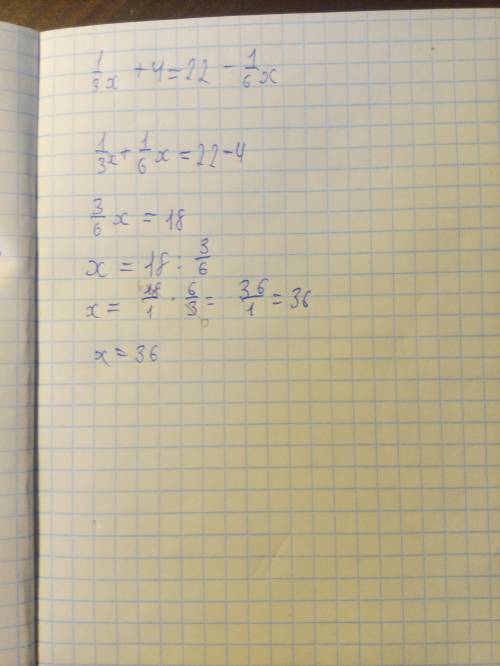 1/3 x + 4 = 22 - 1/6 x
1/3 x + 1/6 x = 22 - 4
3/6 x = 18
x = 18 : 3/6
x = 18/1 · 6/3 = 36/1 = 36
x = 36